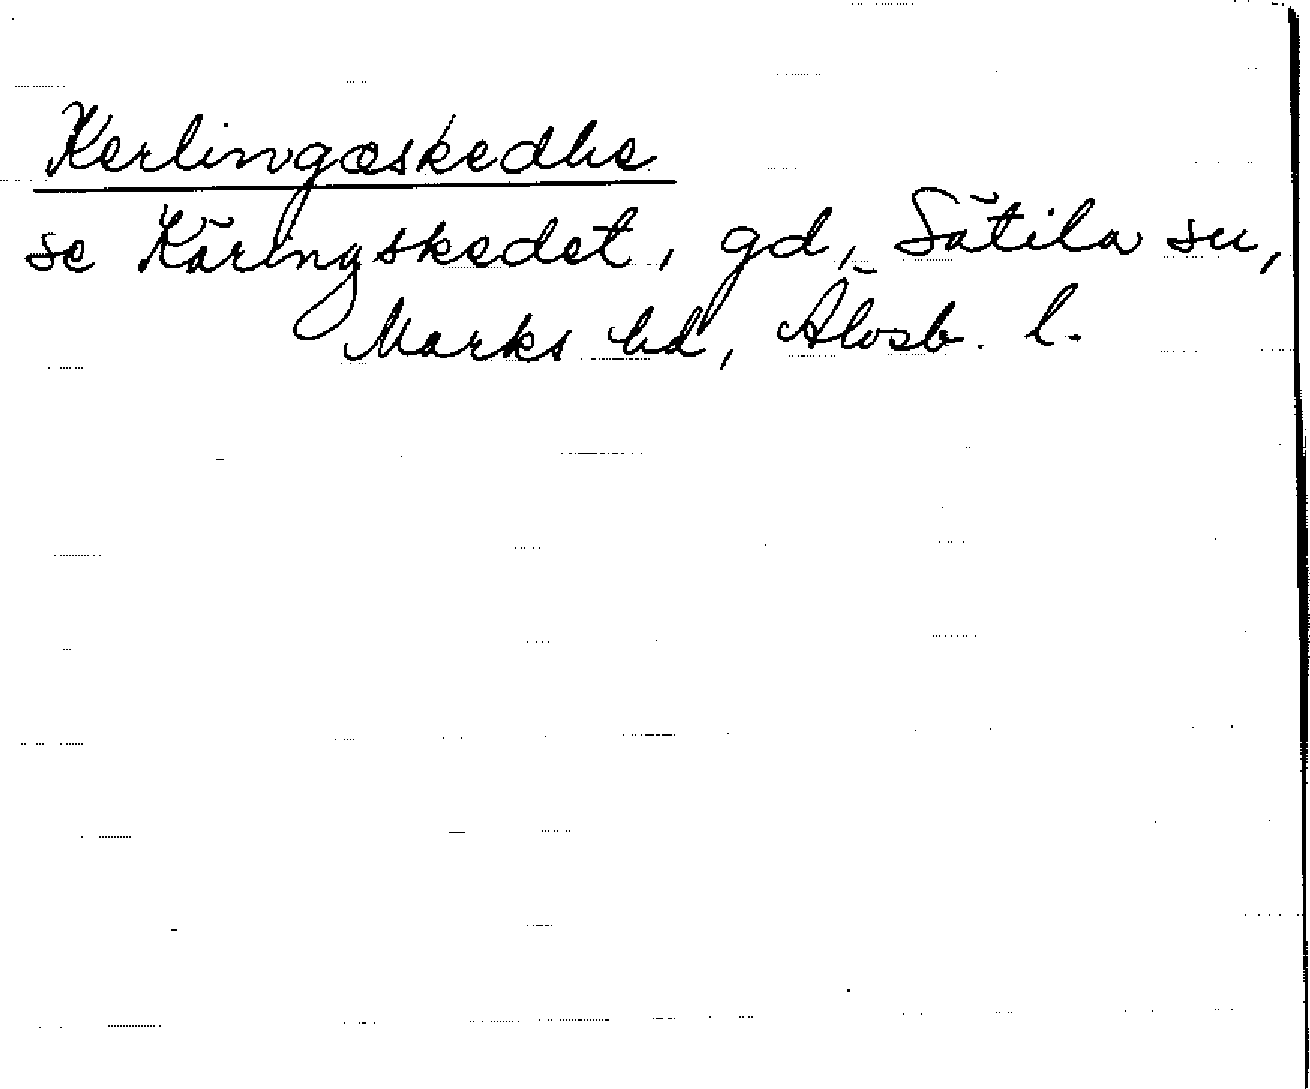 Kerlingæskedhe
se Käringskedet, gd, Sätila sn,
Marks hd, Älvsb. l.